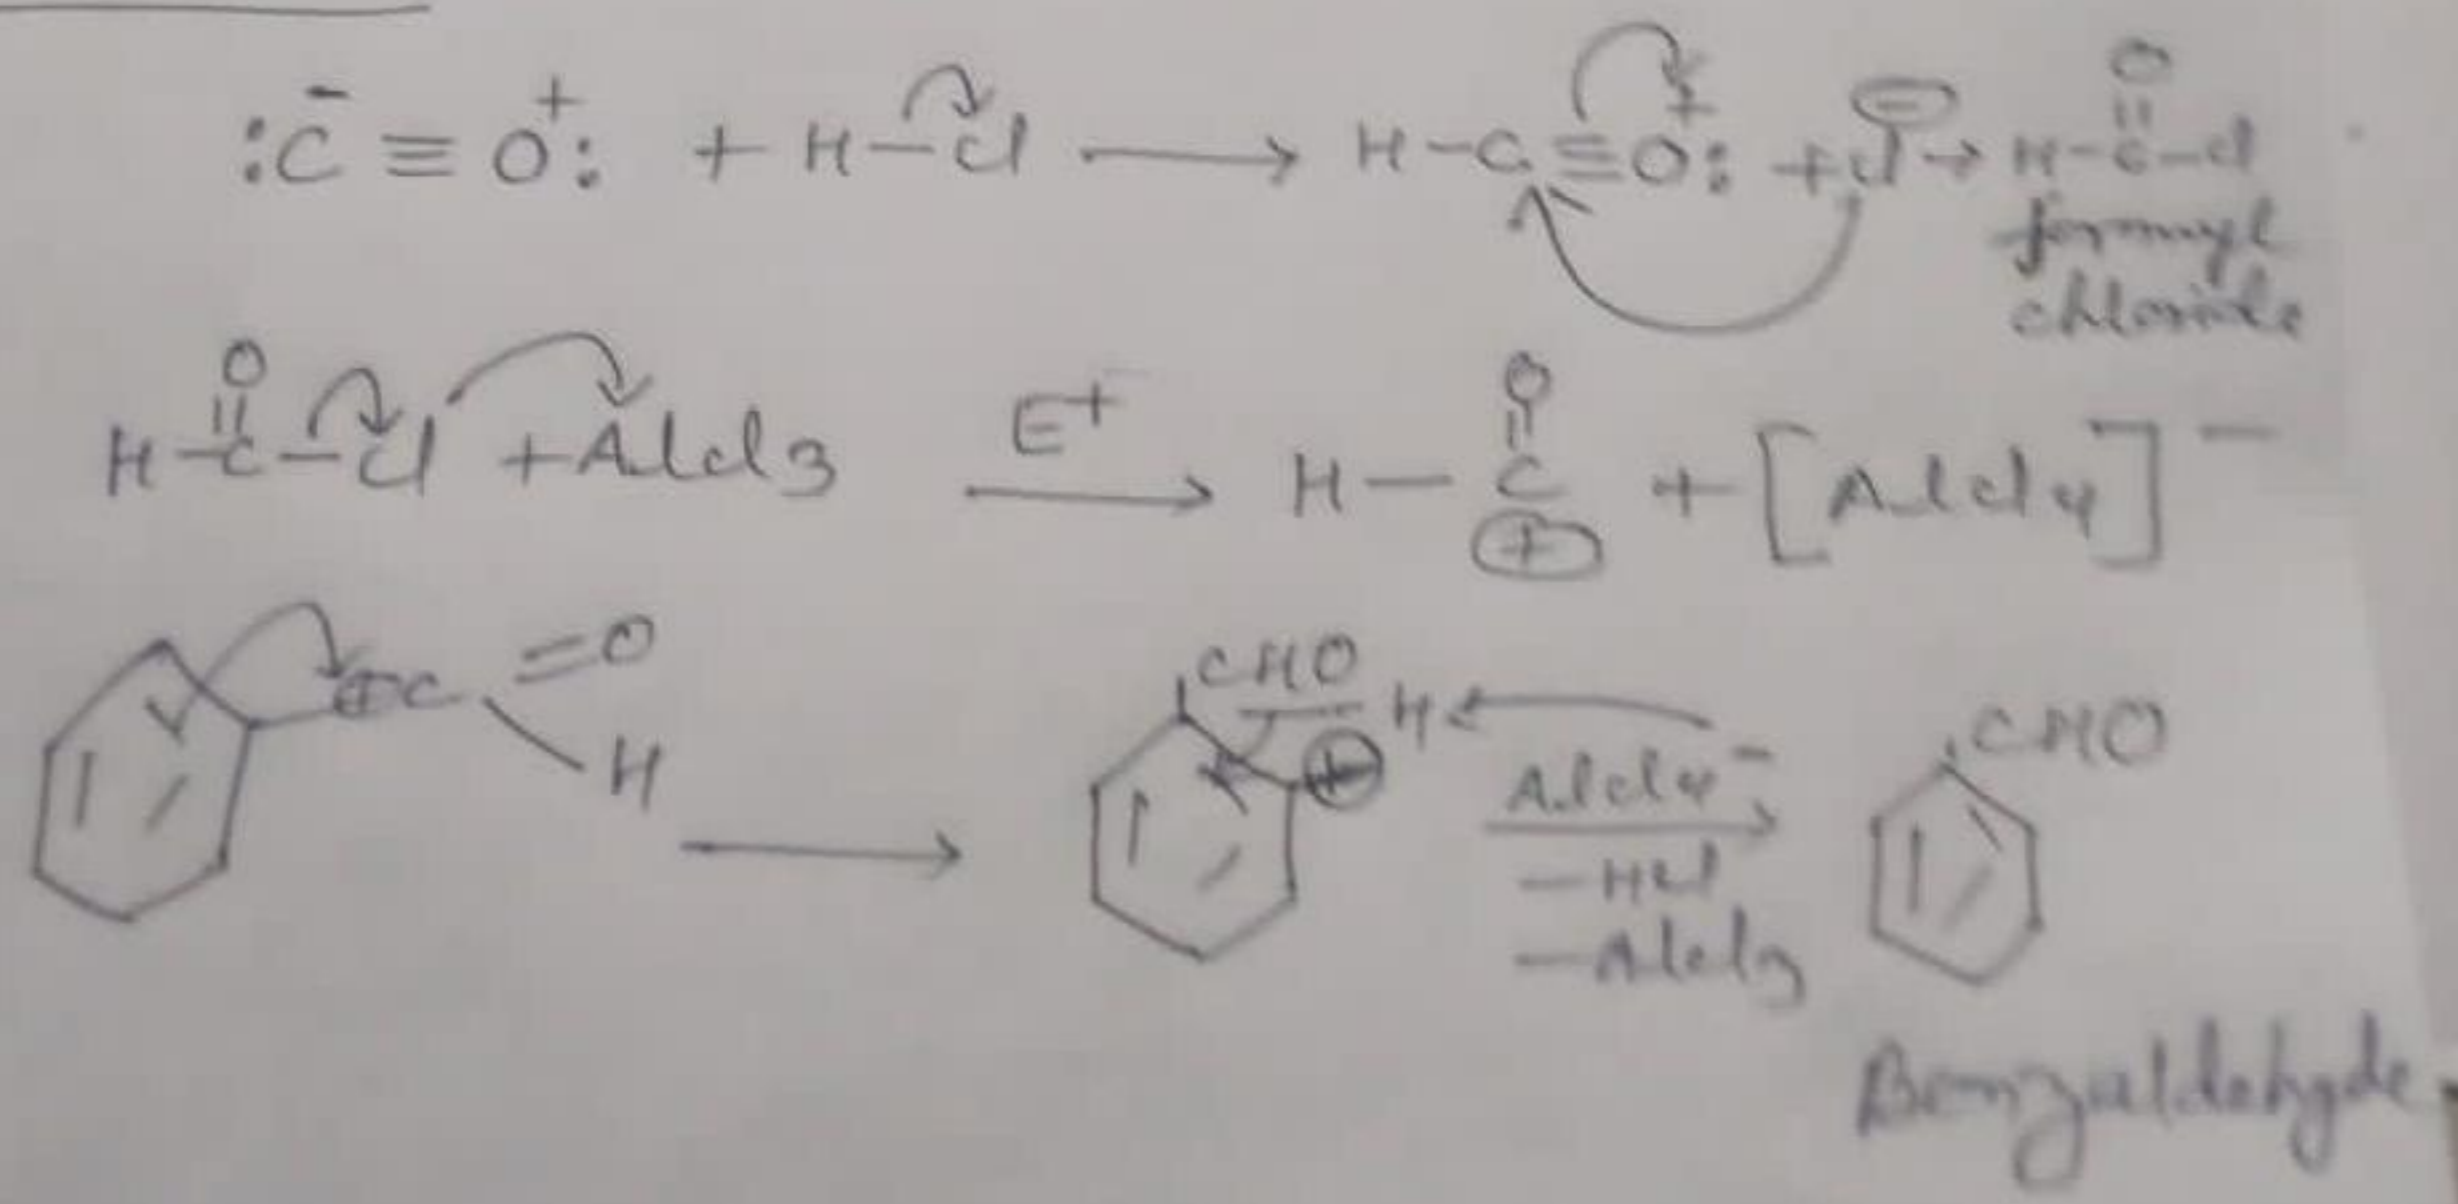 :C̄ ≡ O⁺: + H–Cl ⟶ H–C≡O⁺: + Cl⊖ → H–C(=O)–Cl
formyl
chloride
H–C(=O)–Cl + AlCl3 E⁺⟶ H–C(=O)⊕ + [AlCl4]⁻
⊕C =O
H
⟶
CHO
H
⊕
AlCl4⁻
–HCl
–AlCl3
CHO
Benzaldehyde